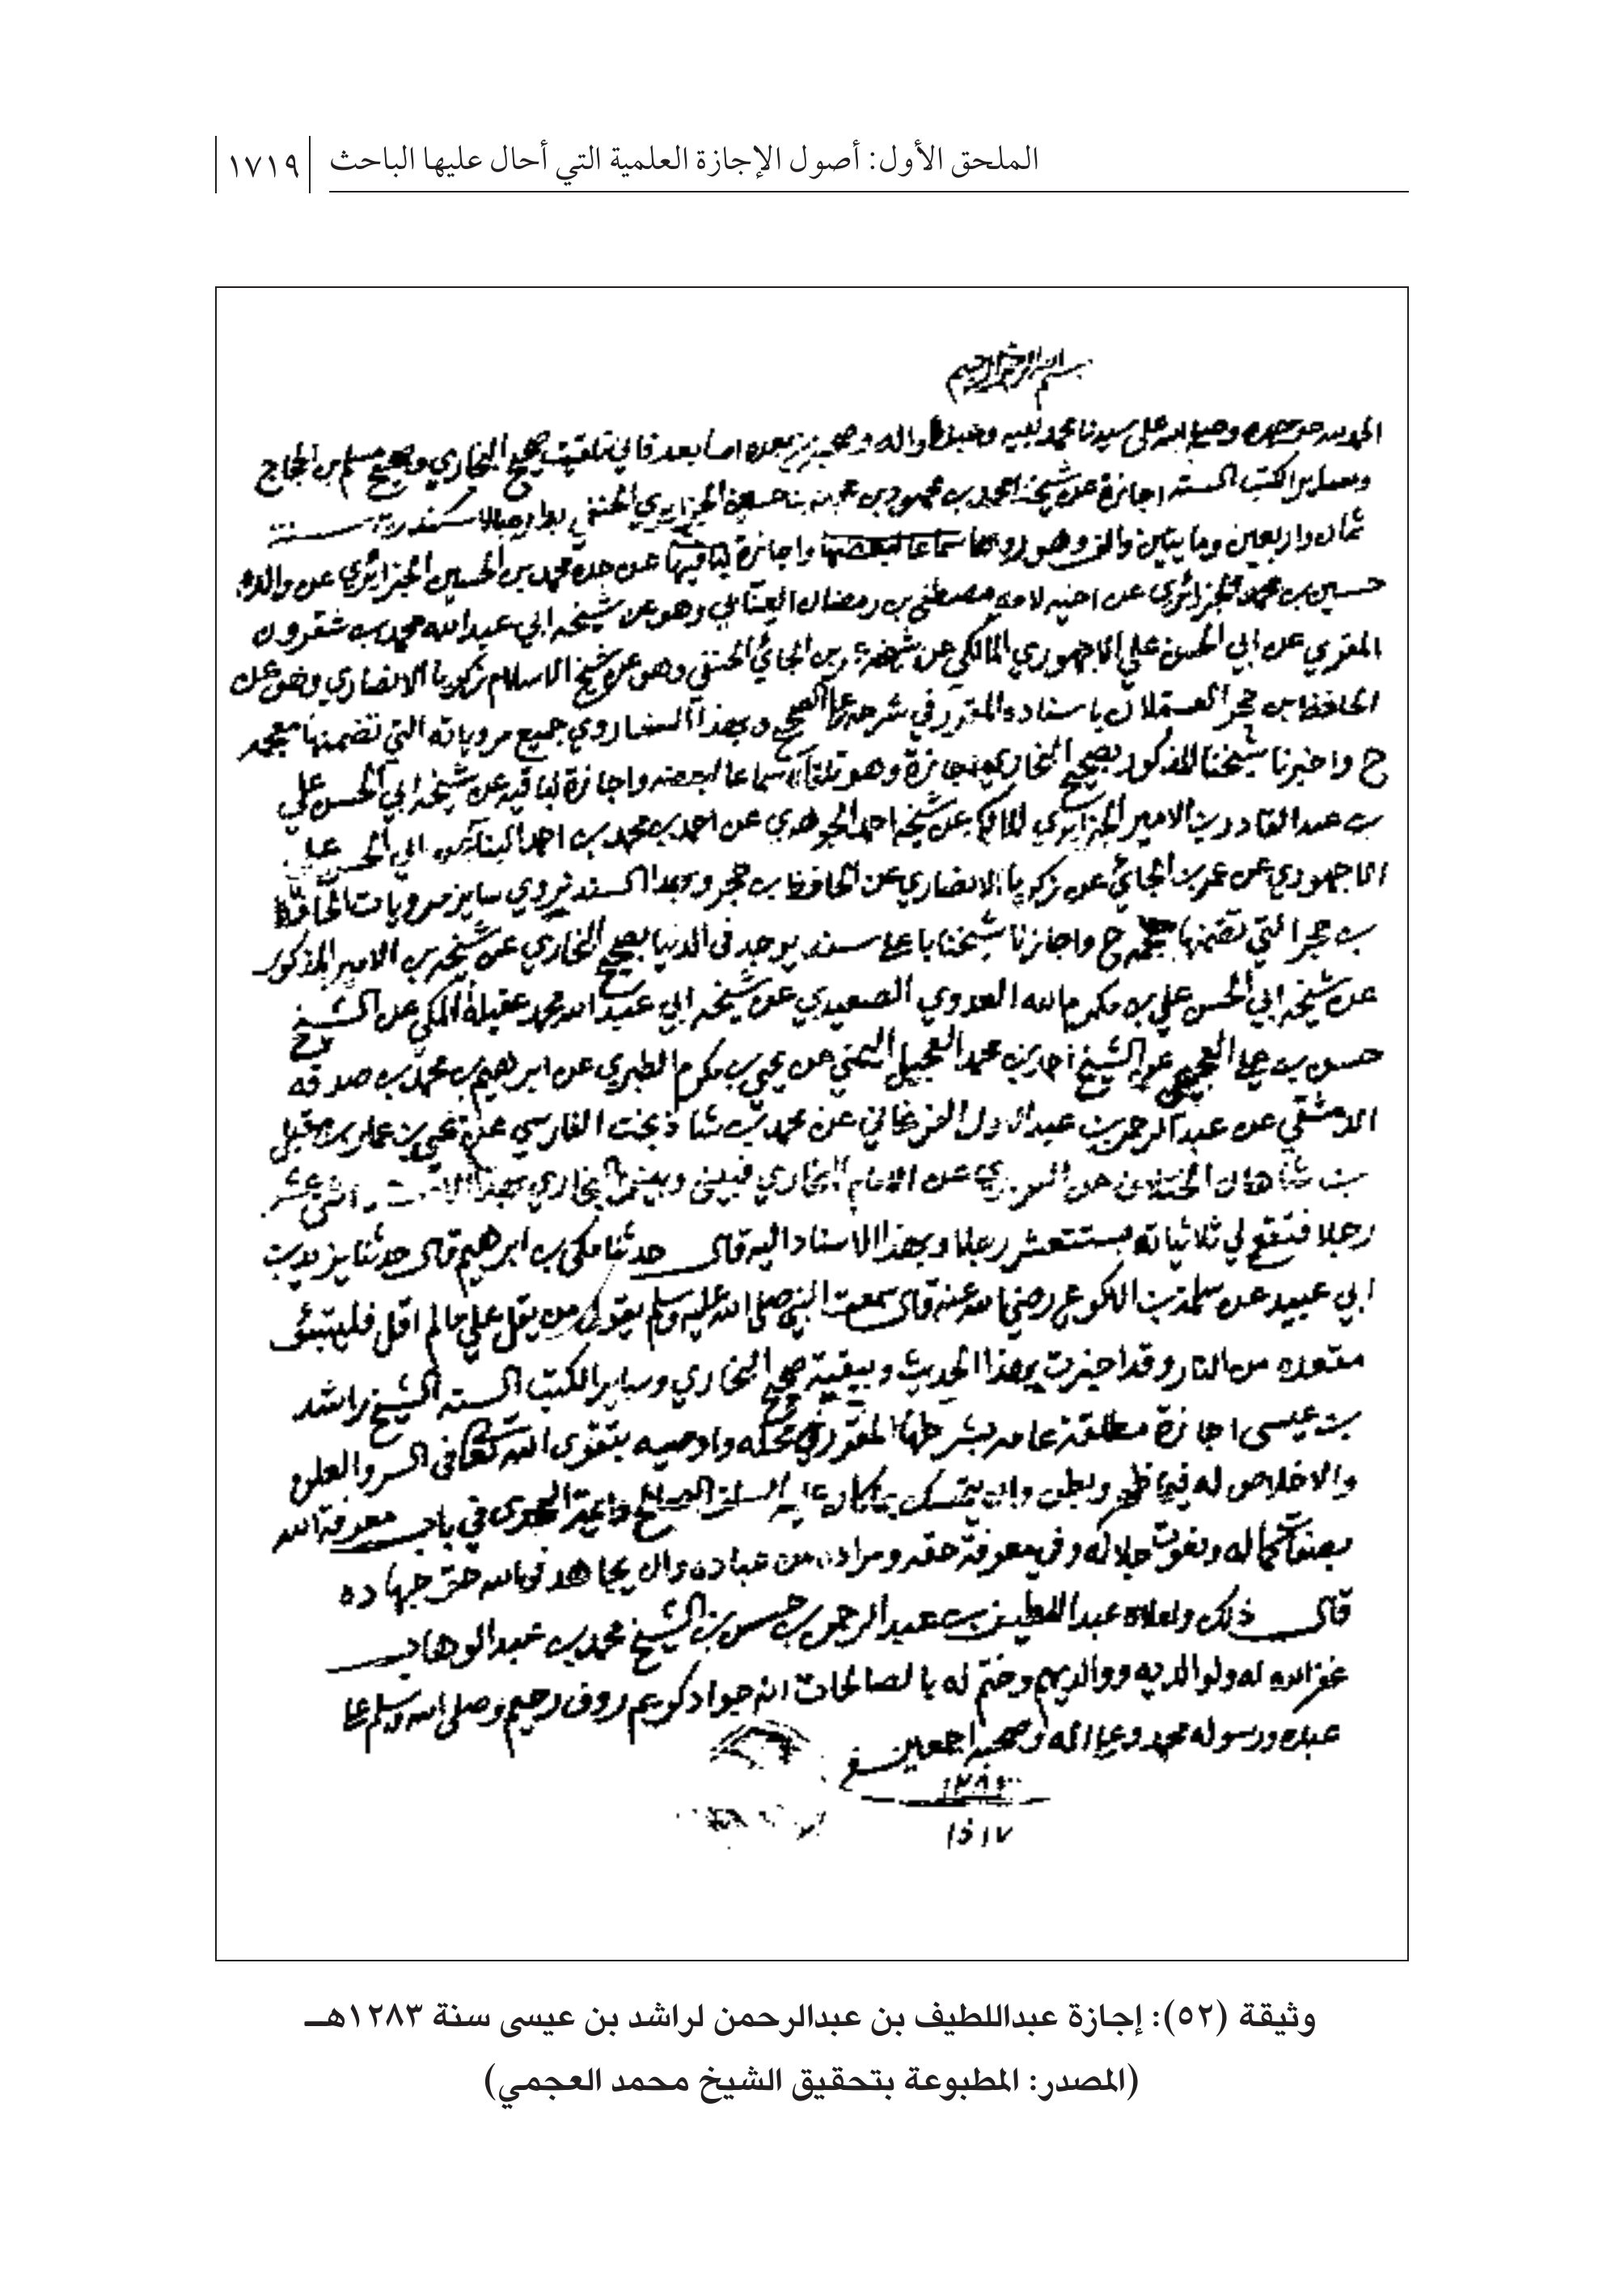 الملحق الأول: أصول الإجازة العلمية التي أحال عليها الباحث ١٧١٩
بسم الله الرحمن الرحيم
الحمد لله حق حمده وصلى الله على سيدنا محمد نبيه وعبده واله وصحبه من بعده اما بعد فاني تلقيت صحيح البخاري وصحيح مسلم بن الحجاج
وساير الكتب الستة اجازة عن شيخنا محمد بن محمود بن محمد بن حسين الجزايري الحنفي بالاسكندرية سنة
ثمان واربعين ومايتين والف وهو رواها سماعا لبعضها واجازة لباقيها عن جده محمد بن الحسين الجزائري عن والده
حسين بن محمد الجزائري عن اخيه لامه مصطفى بن رمضان العنابي وهو عن شيخه ابي عبد الله محمد بن شقرون
المقري عن ابي الحسن علي الاجهوري المالكي عن شيخه عمر بن الجائي الحنفي وهو عن شيخ الاسلام زكريا الانصاري وهو عن
الحافظ بن حجر العسقلاني باسناده المقرر في شرحه على الصحيح وبهذا السند اروي جميع مروياته التي تضمنها معجمه
ح واخبرنا شيخنا المذكور بصحيح البخاري اجازة وهو تلقاه سماعا لبعضه واجازة لباقيه عن شيخه ابي الحسن علي
بن عبد القادر بن الامير الجزايري المالكي عن شيخه احمد الجوهري عن احمد بن محمد بن احمد البنا عن ابي الحسن علي
الاجهوري عن عمر بن الجائي عن زكريا الانصاري عن الحافظ بن حجر وبهذا السند نروي ساير مرويات الحافظ
بن حجر التي تضمنها معجمه ح واجازنا شيخنا باعلى سند يوجد في الدنيا بصحيح البخاري عن شيخه بن الامير المذكور
عن شيخه ابي الحسن علي بن مكرم الله العدوي الصعيدي عن شيخه ابي عبد الله محمد عقيلة المكي عن الشيخ
حسن بن علي العجيمي عن الشيخ احمد بن محمد العجيل اليمني عن يحيى بن مكرم الطبري عن ابرهيم بن محمد بن صدقه
الدمشقي عن عبد الرحمن بن عبد الاول الفرغاني عن محمد بن شاذبخت الفارسي عن يحيى بن عمار بن مقبل
بن شاهان الختلاني عن الفربري عن الامام البخاري فبيني وبين البخاري بهذا اثني عشر
رجلا فتقع لي ثلاثياته بستة عشر رجلا وبهذا الاسناد اليه قال حدثنا مكي بن ابرهيم قال حدثنا يزيد بن
ابي عبيد عن سلمة بن الاكوع رضي الله عنه قال سمعت النبي صلى الله عليه وسلم يقول من يقل علي مالم اقل فليتبوأ
مقعده من النار وقد اجزت بهذا الحديث وببقية صحيح البخاري وساير الكتب الستة الشيخ راشد
بن عيسى اجازة مطلقة عامة بشرطها المقرر في محله واوصيه بتقوى الله تعالى في السر والعلن
والاخلاص له فيما ظهر وبطن وان يتمسك بما كان عليه السلف الصالح وائمة الهدى في باب معرفة الله
بصفات كماله ونعوت جلاله وفي معرفة حقه ومراده من عباده وان يجاهد في الله حق جهاده
قال ذلك واملاه عبد اللطيف بن عبد الرحمن بن حسن بن الشيخ محمد بن عبد الوهاب
غفر الله له ولوالديه ووالديهم وختم له بالصالحات انه جواد كريم روف رحيم وصلى الله وسلم على
عبده ورسوله محمد وعلى اله وصحبه اجمعين
وثيقة (٥٢): إجازة عبداللطيف بن عبدالرحمن لراشد بن عيسى سنة ١٢٨٣هـ
(المصدر: المطبوعة بتحقيق الشيخ محمد العجمي)